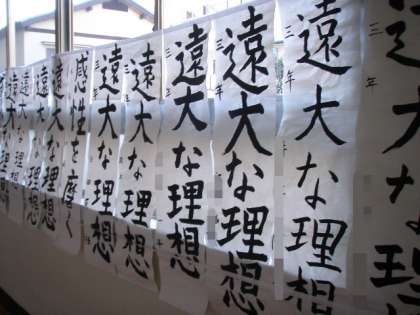 遠大な理
三年
遠大な理想
三年
遠大な理想
三年
遠大な理想
三年
遠大な理想
遠大な理想
感性を磨く
遠大な理想
遠大な理想